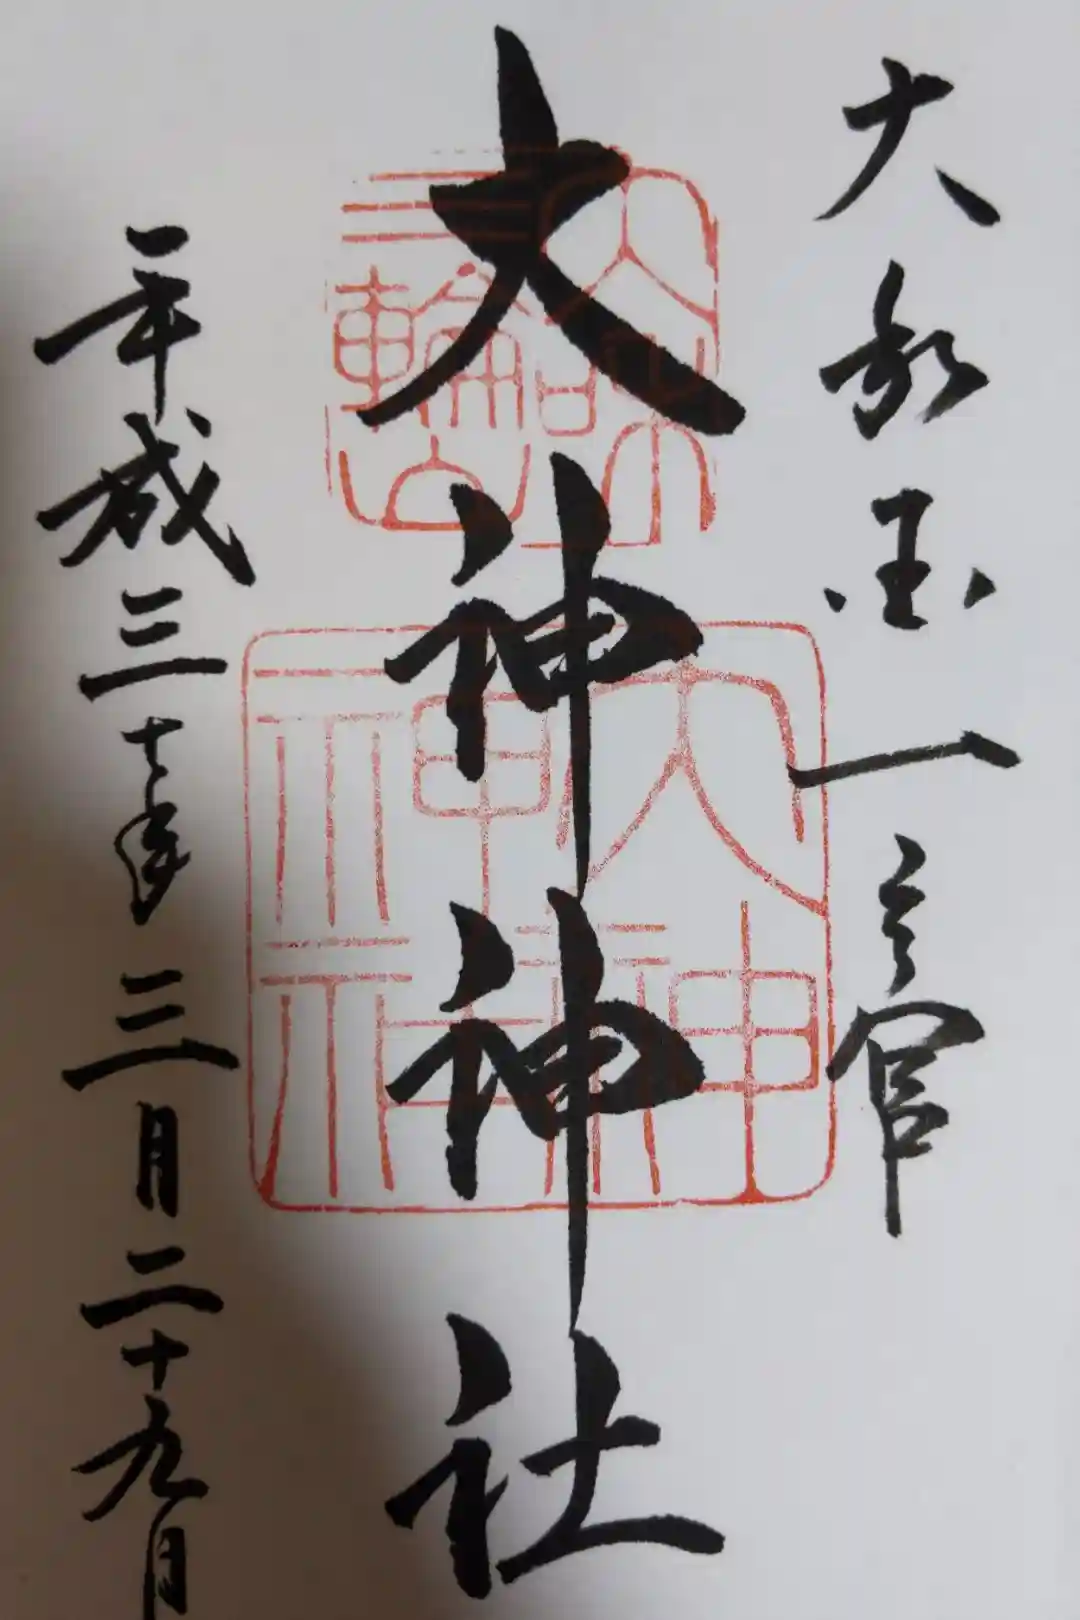 大和国一之宮
大神神社
平成三十一年三月二十九日
大和
三輪山
大神
神社